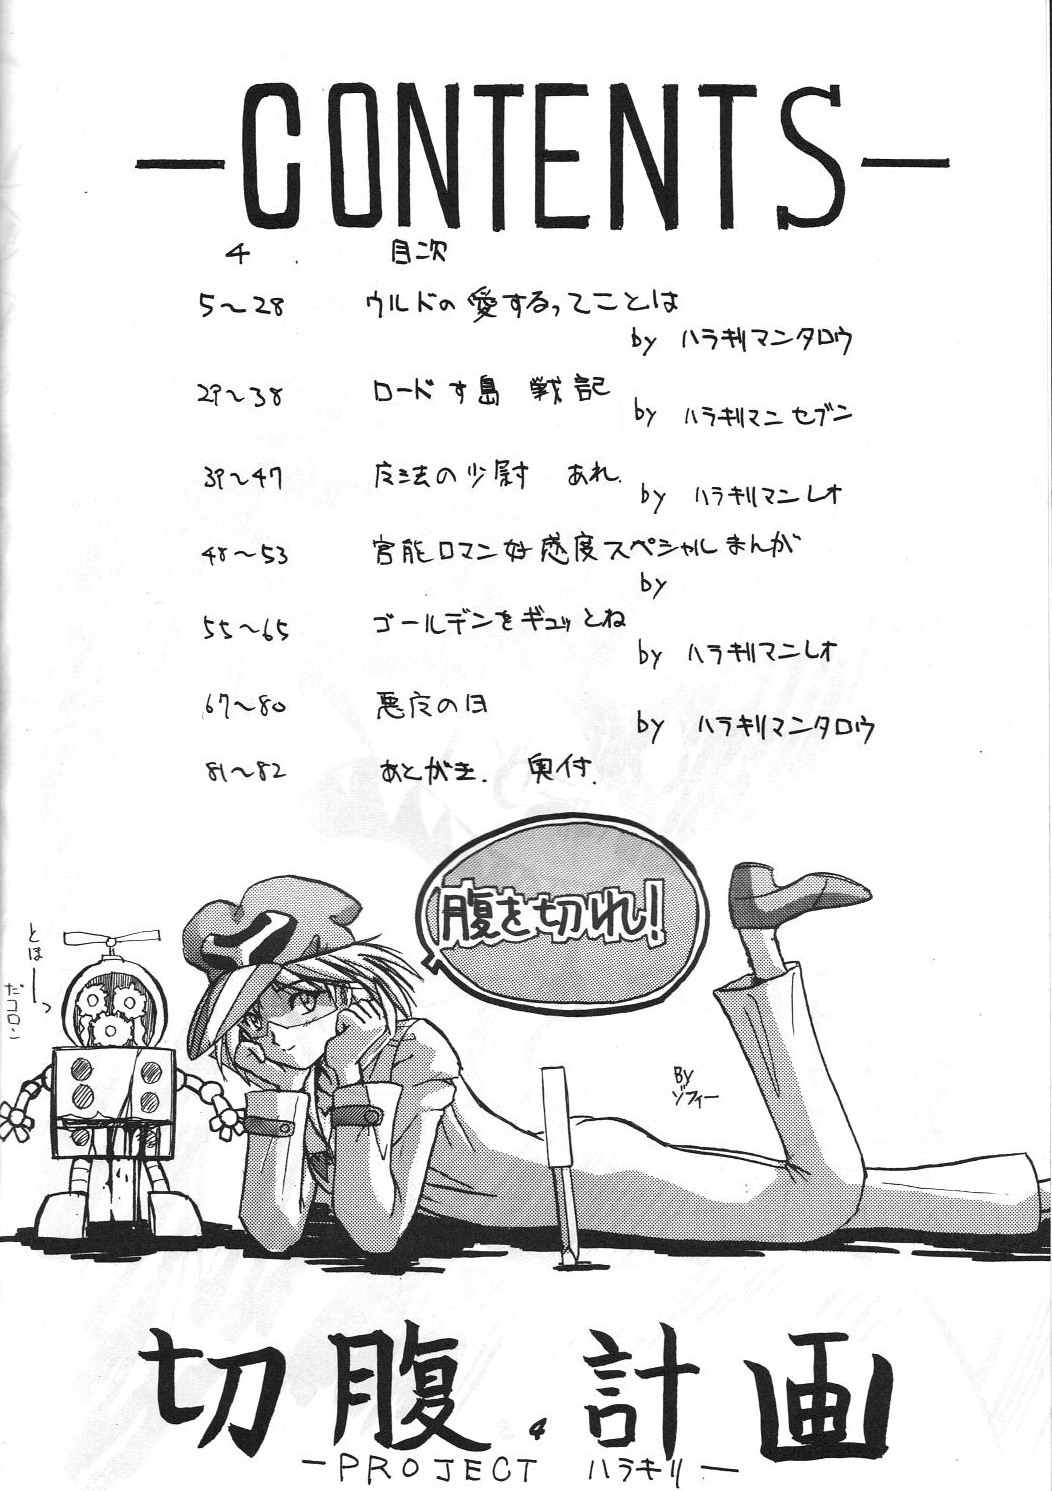 -CONTENTS-
4 目次
5〜28 ウルドの愛するってことは
by ハラキリマンタロウ
29〜38 ロードす島 戦記
by ハラキリマンセブン
39〜47 广法の少尉 あれ.
by ハラキリマンレオ
48〜53 官能ロマン好感度スペシャルまんが
by
55〜65 ゴールデンをギュッとね
by ハラキリマンレオ
67〜80 悪广の日
by ハラキリマンタロウ
81〜82 あとがき. 奥付.
腹を切れ!
とほーっ
だコロン
By ゾフィー
切腹計画
4
-PROJECT ハラキリ-